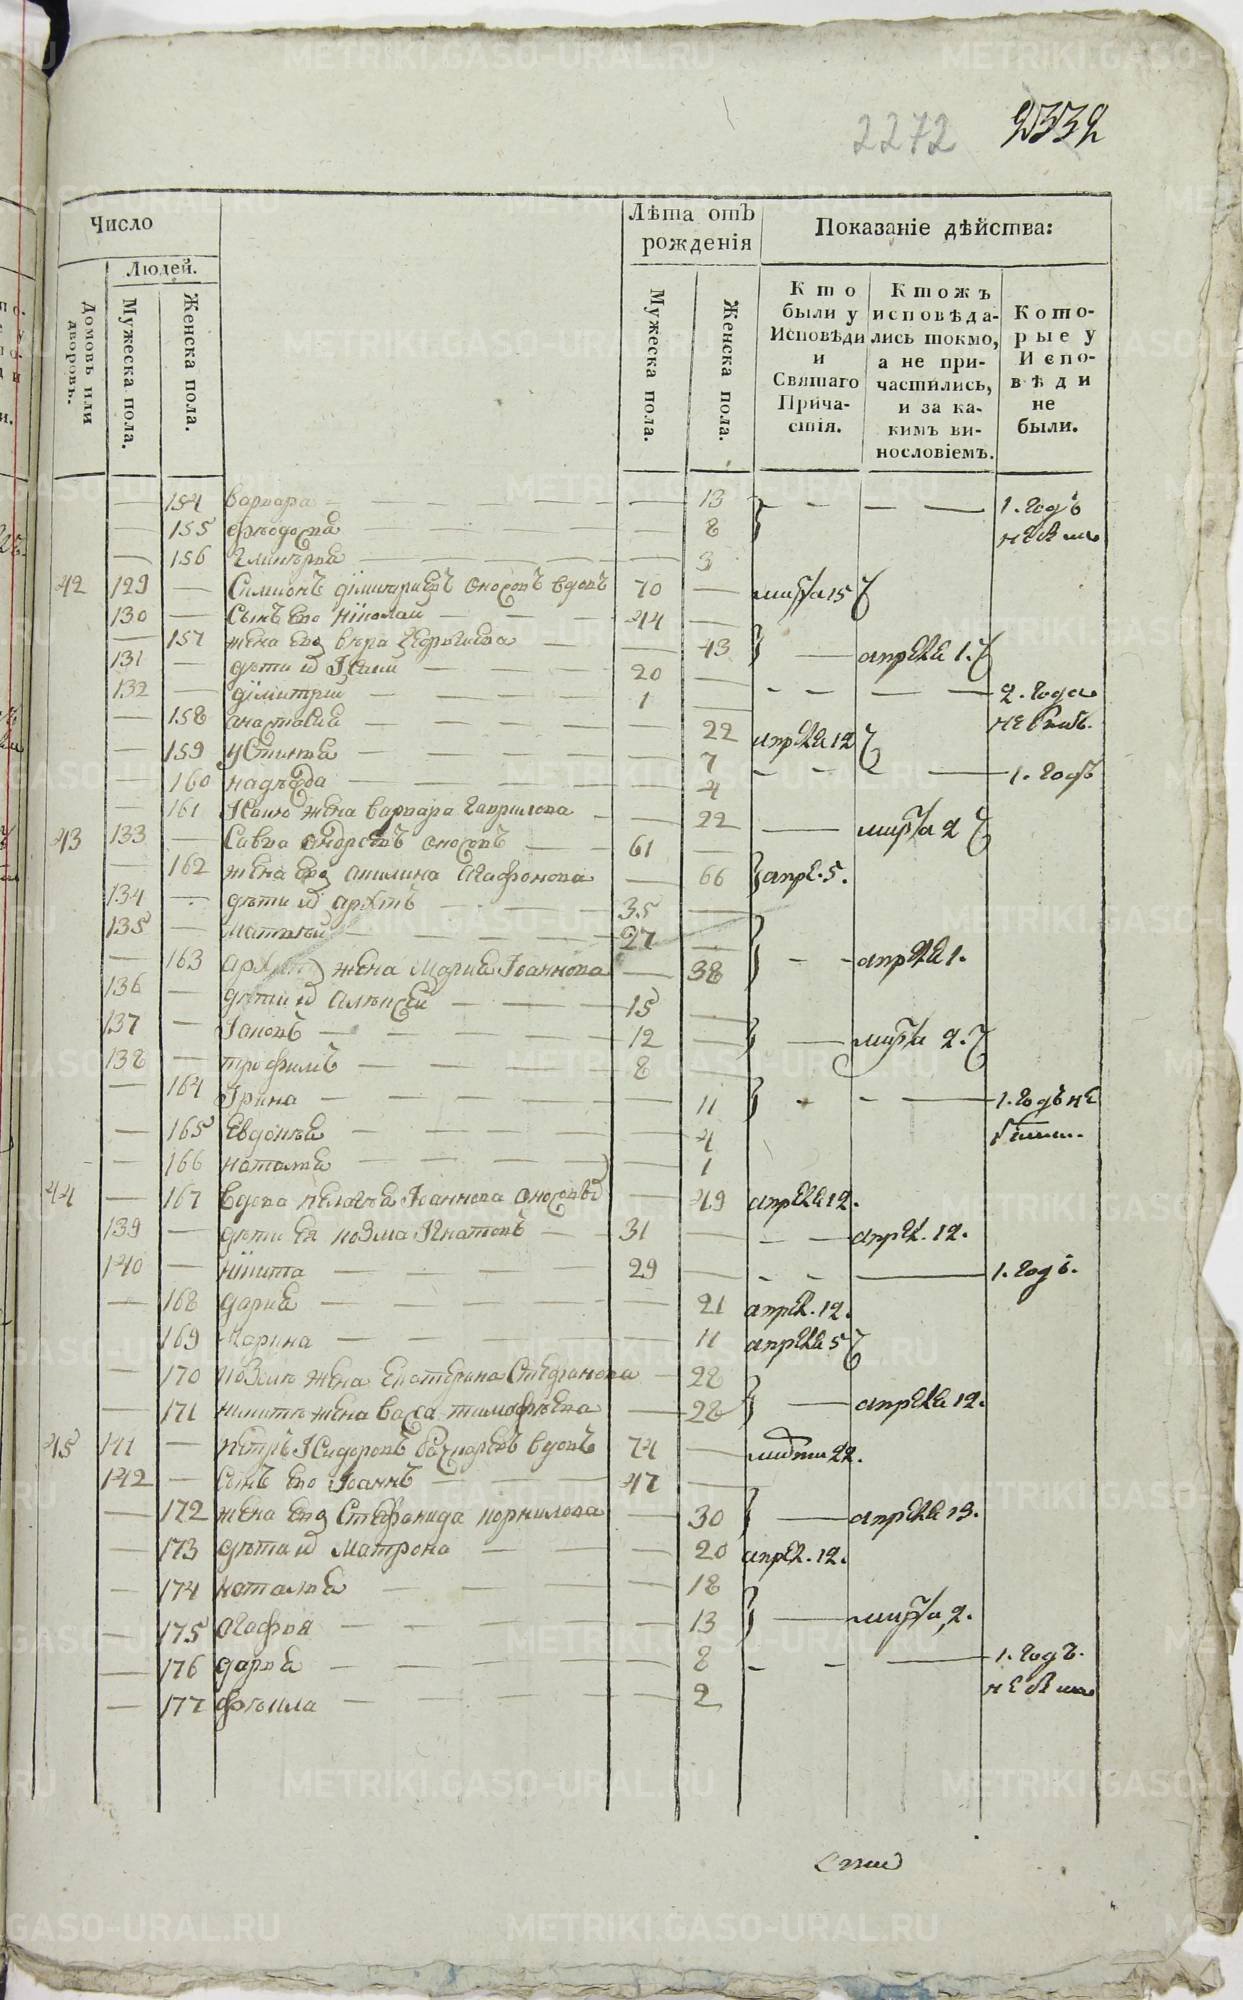 2272 2332
Число
Лѣта отъ рожденія
Показаніе дѣйства:
Людей.
Домовъ или дворовъ.
Мужеска пола.
Женска пола.
Мужеска пола.
Женска пола.
Кто были у Исповѣди и Святаго Причастія.
Ктожъ исповѣдались токмо, а не причастились, и за какимъ винословіемъ.
Которые у Исповѣди не были.
154 варвара 13 1. годъ
155 8 не
156 3
42 129 Симионъ вдовъ 70 марта 15
130 Сынъ его Николай 44
157 жена его 43 апреля 1.
131 дѣти их 20
132 димитрий 1 2. года
158 анастасия 22 апреля 12 не были.
159 устинья 7
160 надежда 4 1. годъ
161 жена варвара гаврилова 22 марта 2
43 133 Савва 61
162 жена его акилина агафонова 66 апре. 5.
134 дѣти их 35
135 матвей 27
163 жена Мария Иоаннова 38 апреля 1.
136 дѣти их алексей 15
137 Иаковъ 12 марта 2.
138 трофимъ 8
164 Ирина 11 1. годъ не
165 Евдокия 4 были.
166 наталья 1
44 167 вдова пелагея Иоаннова 49 апреля 12.
139 дѣти ея козма 31 апрел. 12.
140 никита 29 1. годъ.
168 дария 21 апрел. 12.
169 Марина 11 апреля 5
170 жена Екатерина Стефанова 28
171 жена тимофеева 28 апреля 12.
45 141 петръ Исидоровъ вдовъ 74 марта 22.
142 Сынъ его Иоаннъ 47
172 жена его Стефанида корнилова 30 апреля 13.
173 дѣти их Матрона 20 апрел. 12.
174 наталья 18
175 агафья 13 марта 2.
176 дарья 8 1. годъ.
177 фекла 2 не